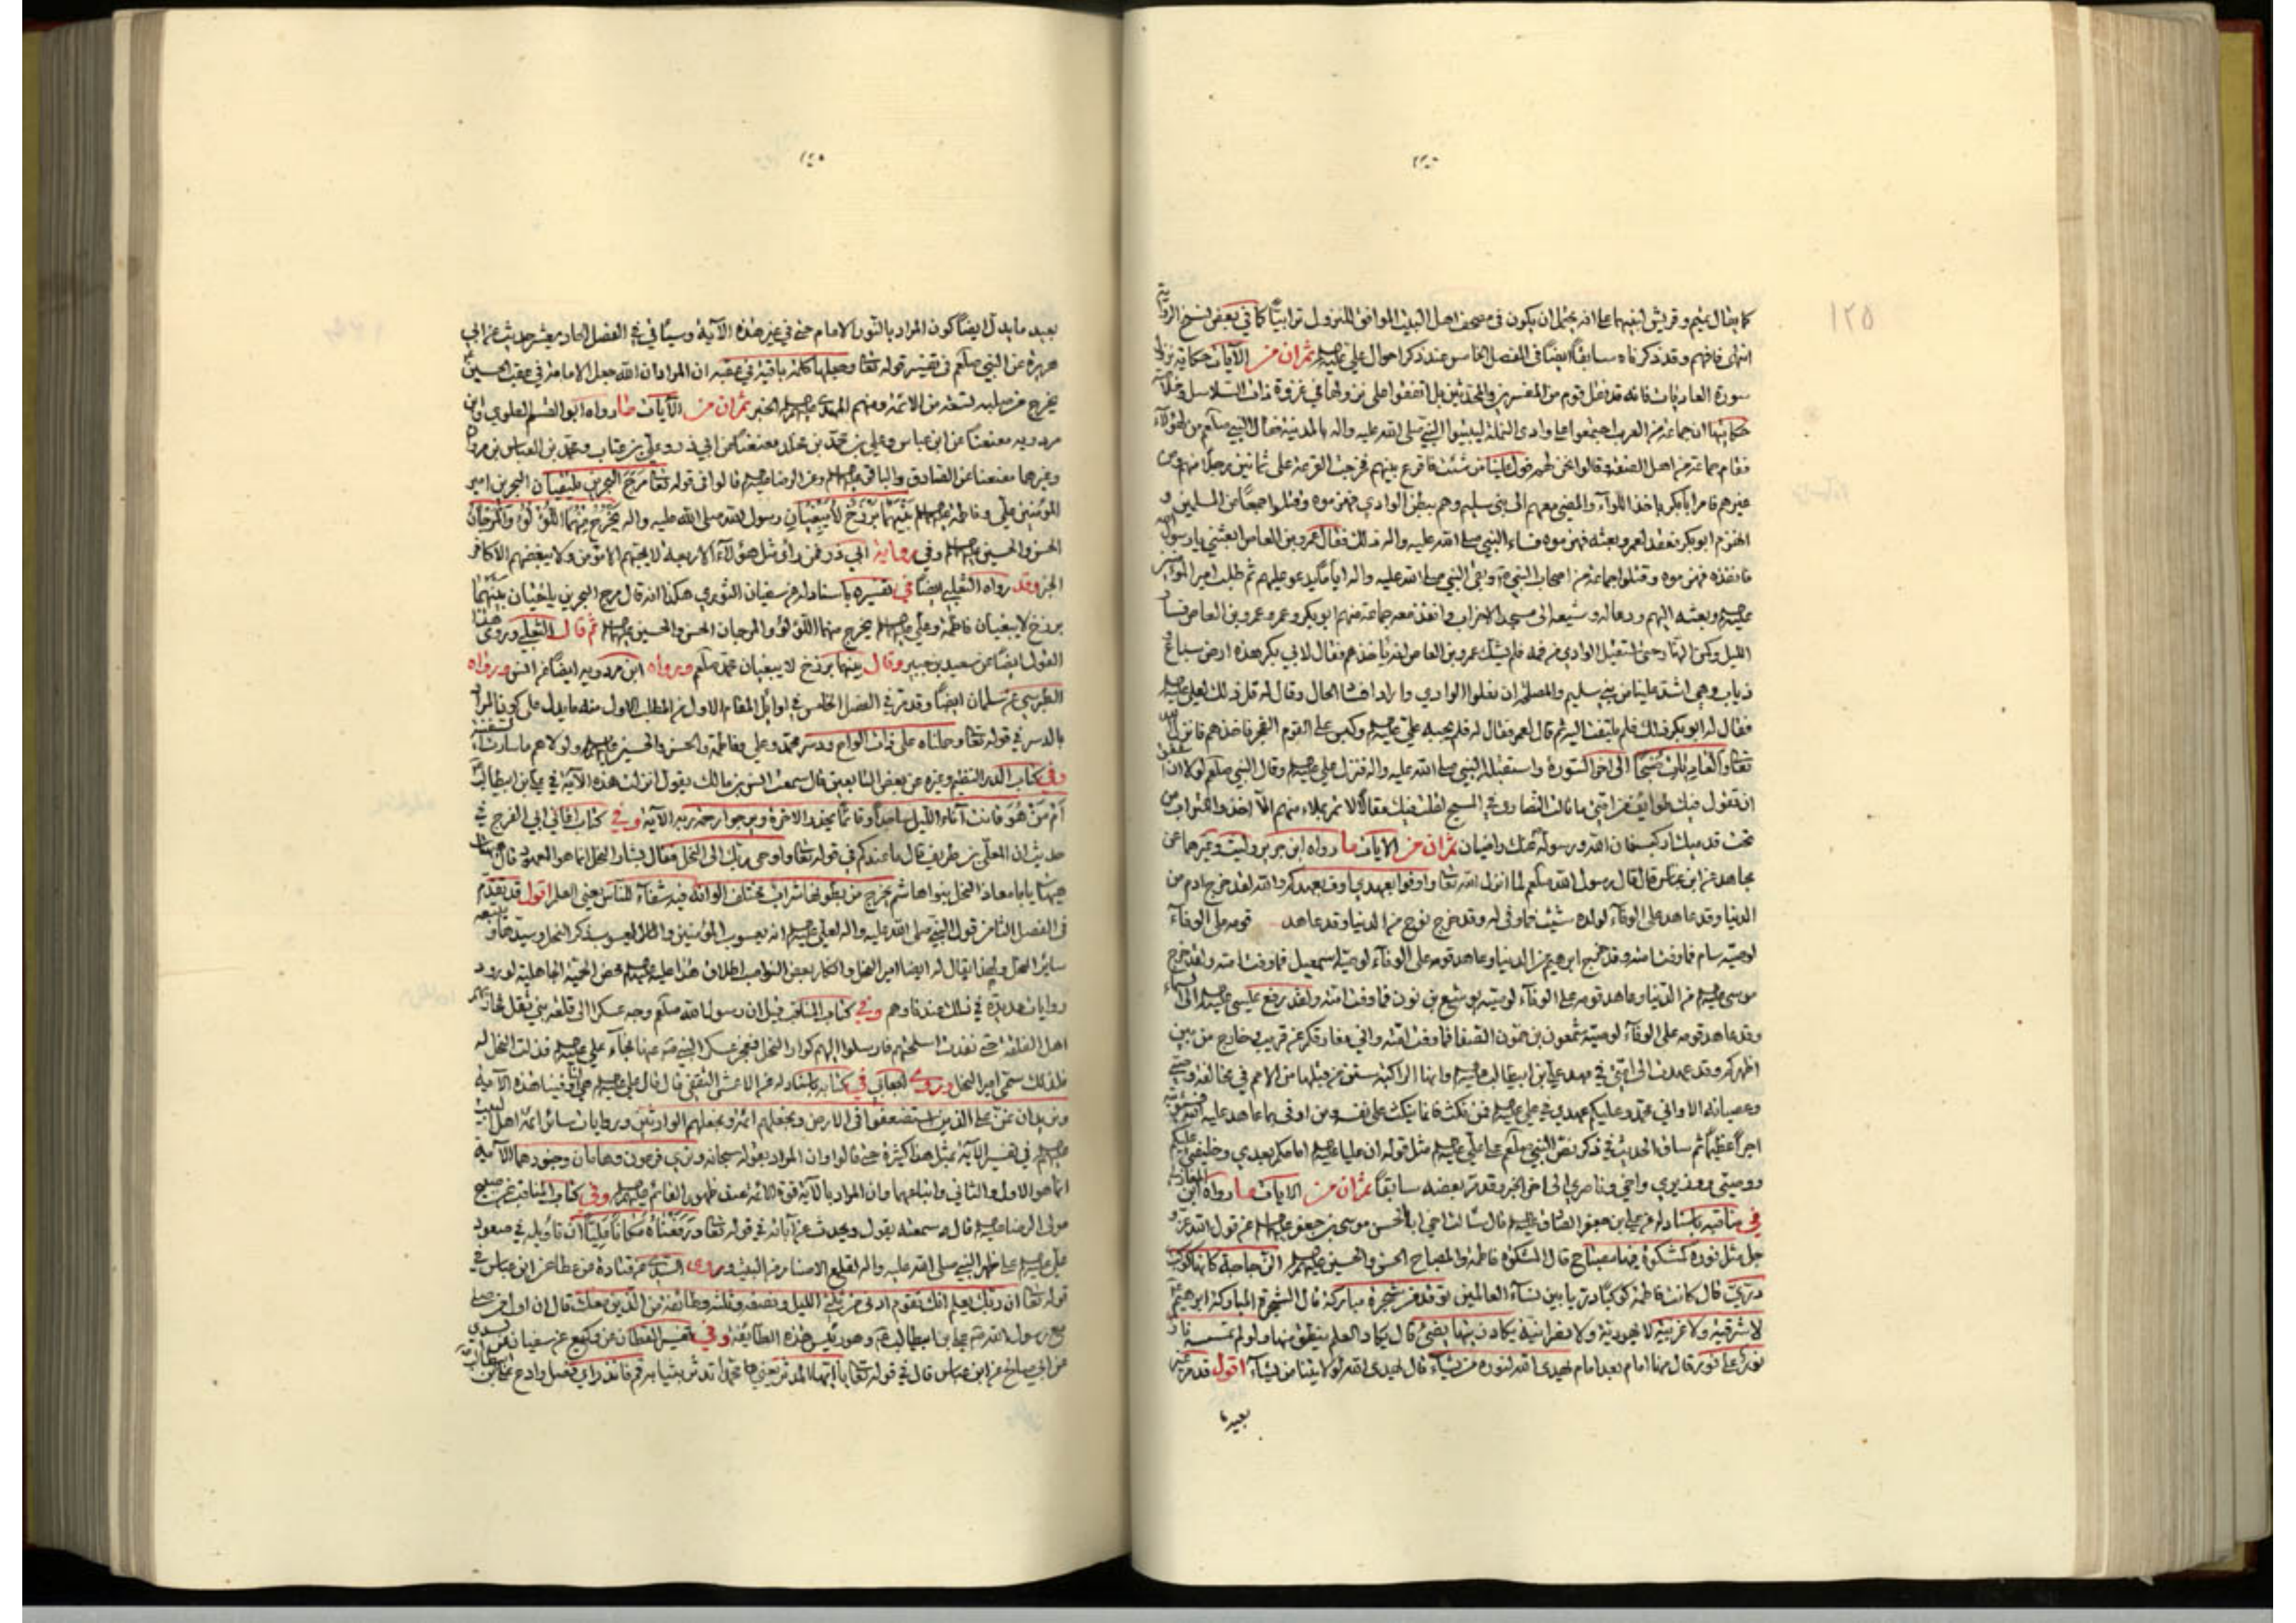 كما يقال تيم وقريش لبنيهما على انه يحتمل ان يكون في مصحف اهل البيت الموافق للنزول ترابيّاً كما في بعض نسخ الرواية
انتهى فافهم وقد ذكرناه سابقاً ايضاً في الفصل الخامس عند ذكر احوال علي ثم ان من الآيات حكاية نزول
سورة العاديات فانه قد نقل قوم من المفسرين والمحدثين بل اتفقوا على نزولها في غزوة ذات السلاسل وخلاصة
حكايتها ان جماعة من العرب اجتمعوا على وادي الرملة ليبيتوا النبي صلى الله عليه واله بالمدينة فقال النبي صلعم من لهؤلاء
فقام جماعة من اهل الصفة وقالوا نحن لهم فول علينا من شئت فاقرع بينهم فخرجت القرعة على ثمانين رجلا منهم ومن
غيرهم فامر ابا بكر باخذ اللواء والمضي معهم الى بني سليم وهم ببطن الوادي فهزموه وقتلوا جمعاً من المسلمين و
انهزم ابو بكر فعقد لعمر وبعثه فهزموه فساء النبي صلى الله عليه واله ذلك فقال عمرو بن العاص ابعثني يا رسول الله
فانفذه فهزموه وقتلوا جماعة من اصحاب النبي وبقي النبي صلى الله عليه واله اياماً يدعو عليهم ثم طلب امير المؤمنين
وبعثه اليهم ودعا له وشيعه الى مسجد الاحزاب وانفذ معه جماعة منهم ابو بكر وعمر وعمرو بن العاص فسار
الليل وكمن النهار حتى استقبل الوادي من فمه فلم يشك عمرو بن العاص انه ياخذهم فقال لابي بكر هذه ارض سباع و
ذياب وهي اشد علينا من بني سليم والمصلحة ان نعلوا الوادي واراد افساد الحال وقال له قل ذلك لعلي
فقال له ابو بكر ذلك فلم يلتفت اليه ثم قال لعمر فقال له فلم يجبه علي وكبس على القوم الفجر فاخذهم فانزل الله
تعالى والعاديات ضبحاً الى اخر السورة واستقبله النبي صلى الله عليه واله فنزل علي وقال النبي صلعم لولا ان اشفق
ان تقول فيك طوايف من امتي ما قالت النصارى في المسيح لقلت فيك مقالا لا تمر بملاء منهم الا اخذوا التراب من
تحت قدميك اركب فان الله ورسوله عنك راضيان ثم ان من الآيات ما رواه ابن جرير وليث وغيرهما عن
مجاهد عن ابن عباس قال قال رسول الله صلعم لما انزل الله تعالى واوفوا بعهدي اوف بعهدكم والله لقد خرج ادم من
الدنيا وقد عاهد على الوفاء لولده شيث فما وفى له وقد خرج نوح من الدنيا وقد عاهد قومه على الوفاء
لوصيه سام فما وفت امته وقد خرج ابرهيم من الدنيا وعاهد قومه على الوفاء لوصيه اسمعيل فما وفت امته ولقد خرج
موسى من الدنيا وعاهد قومه على الوفاء لوصيه يوشع بن نون فما وفت امته ولقد رفع عيسى الى السماء
وقد عاهد قومه على الوفاء لوصيه شمعون بن حمون الصفا فما وفت امته واني مفارقكم عن قريب وخارج من بين
اظهركم وقد عهدت الى امتي في عهد علي ابن ابيطالب وانها الراكبة سنن من قبلها من الامم في مخالفة وصيي
وعصيانه الا واني مجدد عليكم عهدي في علي فمن نكث فانما ينكث على نفسه ومن اوفى بما عاهد عليه الله فسيؤتيه
اجراً عظيماً ثم ساق الحديث في ذكر نص النبي صلعم على علي مثل قوله ان عليا امامكم بعدي وخليفتي عليكم
ووصيي ووزيري واخي وناصري الى اخر الخبر وقد مر بعضه سابقاً ثم ان من الآيات ما رواه ابن المغازلي
في مناقبه باسناده عن علي ابن جعفر الصادق قال سالت اخي ابا الحسن موسى بن جعفر عن قول الله عز و
جل مثل نوره كمشكوة فيها مصباح قال المشكوة فاطمة والمصباح الحسن والحسين الزجاجة كانها كوكب
دري قال كانت فاطمة كوكبا دريا بين نساء العالمين توقد من شجرة مباركة قال الشجرة المباركة ابرهيم
لا شرقية ولا غربية لا يهودية ولا نصرانية يكاد زيتها يضيء قال يكاد العلم ينطق منها ولو لم تمسسه نار
نور على نور قال منها امام بعد امام يهدي الله لنوره من يشاء قال يهدي الله لولايتنا من يشاء اقول قد مر غير
بعيد
١٢٥
بعيد ما يدل ايضاً كون المراد بالنور الامام حتى في غير هذه الآية وسياتي في الفصل الحادي عشر حديث عن ابي
هريرة عن النبي صلعم في تفسير قوله تعالى وجعلها كلمة باقية في عقبه ان المراد ان الله جعل الامامة في عقب الحسين
يخرج من صلبه تسعة من الائمة ومنهم المهدي الخبر ثم ان من الآيات ما رواه ابو القسم العلوي وابن
مردويه معنعناً عن ابن عباس وعلي بن محمد بن مخلد معنعناً عن ابي ذر وعلي بن عتاب ومحمد بن العباس بن مروان
وغيرها معنعنا عن الصادق والباقر وعن الرضا قالوا في قوله تعالى مرج البحرين يلتقيان البحرين امير
المؤمنين علي وفاطمة بينهما برزخ لا يبغيان رسول الله صلى الله عليه واله يخرج منهما اللؤلؤ والمرجان
الحسن والحسين وفي رواية ابي ذر فمن راى مثل هؤلاء الاربعة لا يحبهم الا مؤمن ولا يبغضهم الا كافر
الخبر وقد رواه الثعلبي ايضا في تفسيره باسناده عن سفيان الثوري هكذا انه قال مرج البحرين يلتقيان بينهما
برزخ لا يبغيان فاطمة وعلي يخرج منهما اللؤلؤ والمرجان الحسن والحسين ثم قال الثعلبي وروى هذا
القول ايضا عن سعيد بن جبير وقال بينهما برزخ لا يبغيان محمد صلعم ورواه ابن مردويه ايضا عن انس ورواه
الطبرسي عن سلمان ايضا وقد مر في الفصل الخامس في اوايل المقام الاول من المطلب الاول منه ما يدل على كون المراد
بالدسر في قوله تعالى وحملناه على ذات الواح ودسر محمد وعلي وفاطمة والحسن والحسين ولولاهم ما سارت السفينة
وفي كتاب الدر النظيم وغيره عن بعض التابعين قال سمعت انس بن مالك يقول انزلت هذه الآية في علي ابن ابيطالب
أم من هو قانت آناء الليل ساجداً وقائماً يحذر الاخرة ويرجوا رحمة ربه الآية وفي كتاب اغاني ابي الفرج في
حديث ان المعلى بن طريف قال ما عندكم في قوله تعالى واوحى ربك الى النحل فقال بشار النحل انما هو المعهود قال هيهات
هيهات يا ابا معاذ النحل بنو هاشم يخرج من بطونها شراب مختلف الوانه فيه شفاء للناس يعني العلم اقول قد تقدم
في الفصل الثامن قول النبي صلى الله عليه واله لعلي انه يعسوب المؤمنين واليعسوب ذكر النحل وسيدها ويتبعه
ساير النحل ولهذا يقال له ايضا امير النحل وانكار بعض النواصب اطلاق هذا عليه محض الحمية الجاهلية لورود
روايات عديدة في ذلك عندنا وعندهم وفي كتاب المناقب قيل ان رسول الله صلعم وجه عسكرا الى قلعة بني ثعل فحاربهم
اهل القلعة حتى نفدت اسلحتهم فارسلوا اليهم كوار النحل فعجز عسكر النبي عنها فجاء علي فذلت النحل له
فلذلك سمي امير النحل وروى الجعابي في كتابه باسناده عن الاعمش الثقفي قال قال علي هي لنا وفينا هذه الآية
ونريد ان نمن على الذين استضعفوا في الارض ونجعلهم ائمة ونجعلهم الوارثين وروايات سائر ائمة اهل البيت
في تفسير الآية بمثل هذا كثيرة حتى قالوا وان المراد بقوله سبحانه ونري فرعون وهامان وجنودهما الآية
انما هو الاول والثاني واتباعهما وان المراد بالآية قوة الائمة عند ظهور القائم وفي كتاب المناقب عن صبيح
مولى الرضا قال سمعته يقول ويحدث عن آبائه في قوله تعالى ورفعناه مكانا عليا ان تاويله في صعود
علي على ظهر النبي صلى الله عليه واله لقلع الاصنام من البيت وروى السدي عن قتادة عن عطا عن ابن عباس في
قوله تعالى ان ربك يعلم انك تقوم ادنى من ثلثي الليل ونصفه وثلثه وطائفة من الذين معك قال ان اول من صلى
مع رسول الله علي بن ابيطالب وهو رئيس هذه الطائفة وفي تفسير القطان عن وكيع عن سفيان عن السدي
عن ابي صالح عن ابن عباس قال في قوله تعالى يا ايها المدثر يعني محمدا تدثر بثيابه قم فانذر اي فصل وادع علي بن ابيطالب